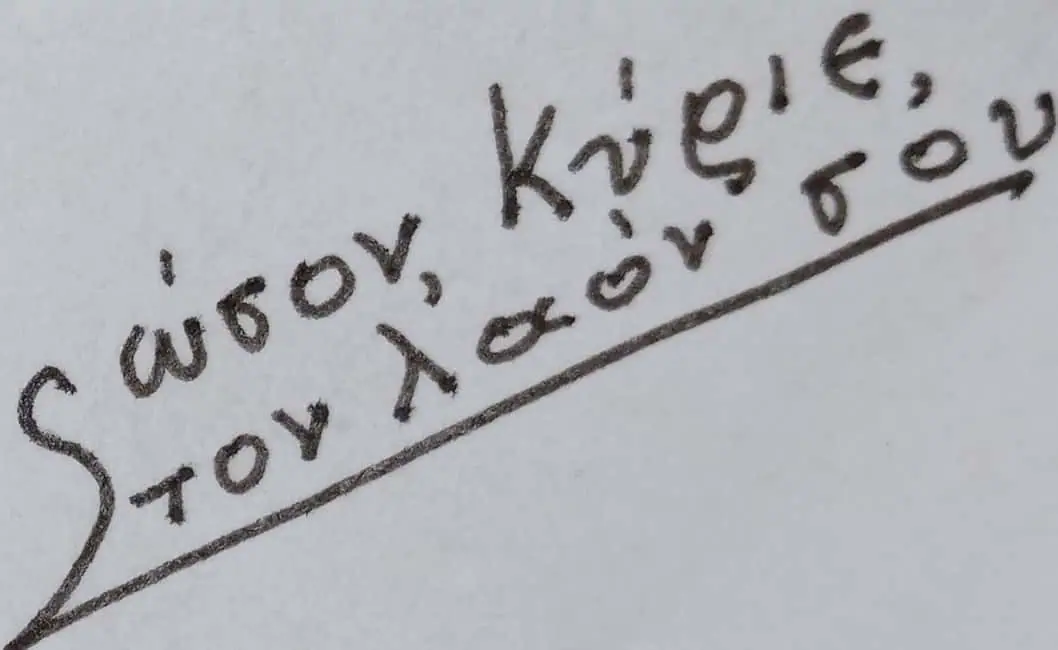 Σώσον, Κύριε,
τον λαόν σου